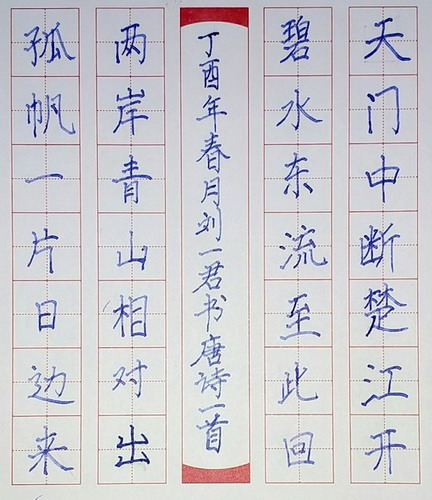 天门中断楚江开
碧水东流至此回
丁酉年春月刘一君书唐诗一首
两岸青山相对出
孤帆一片日边来